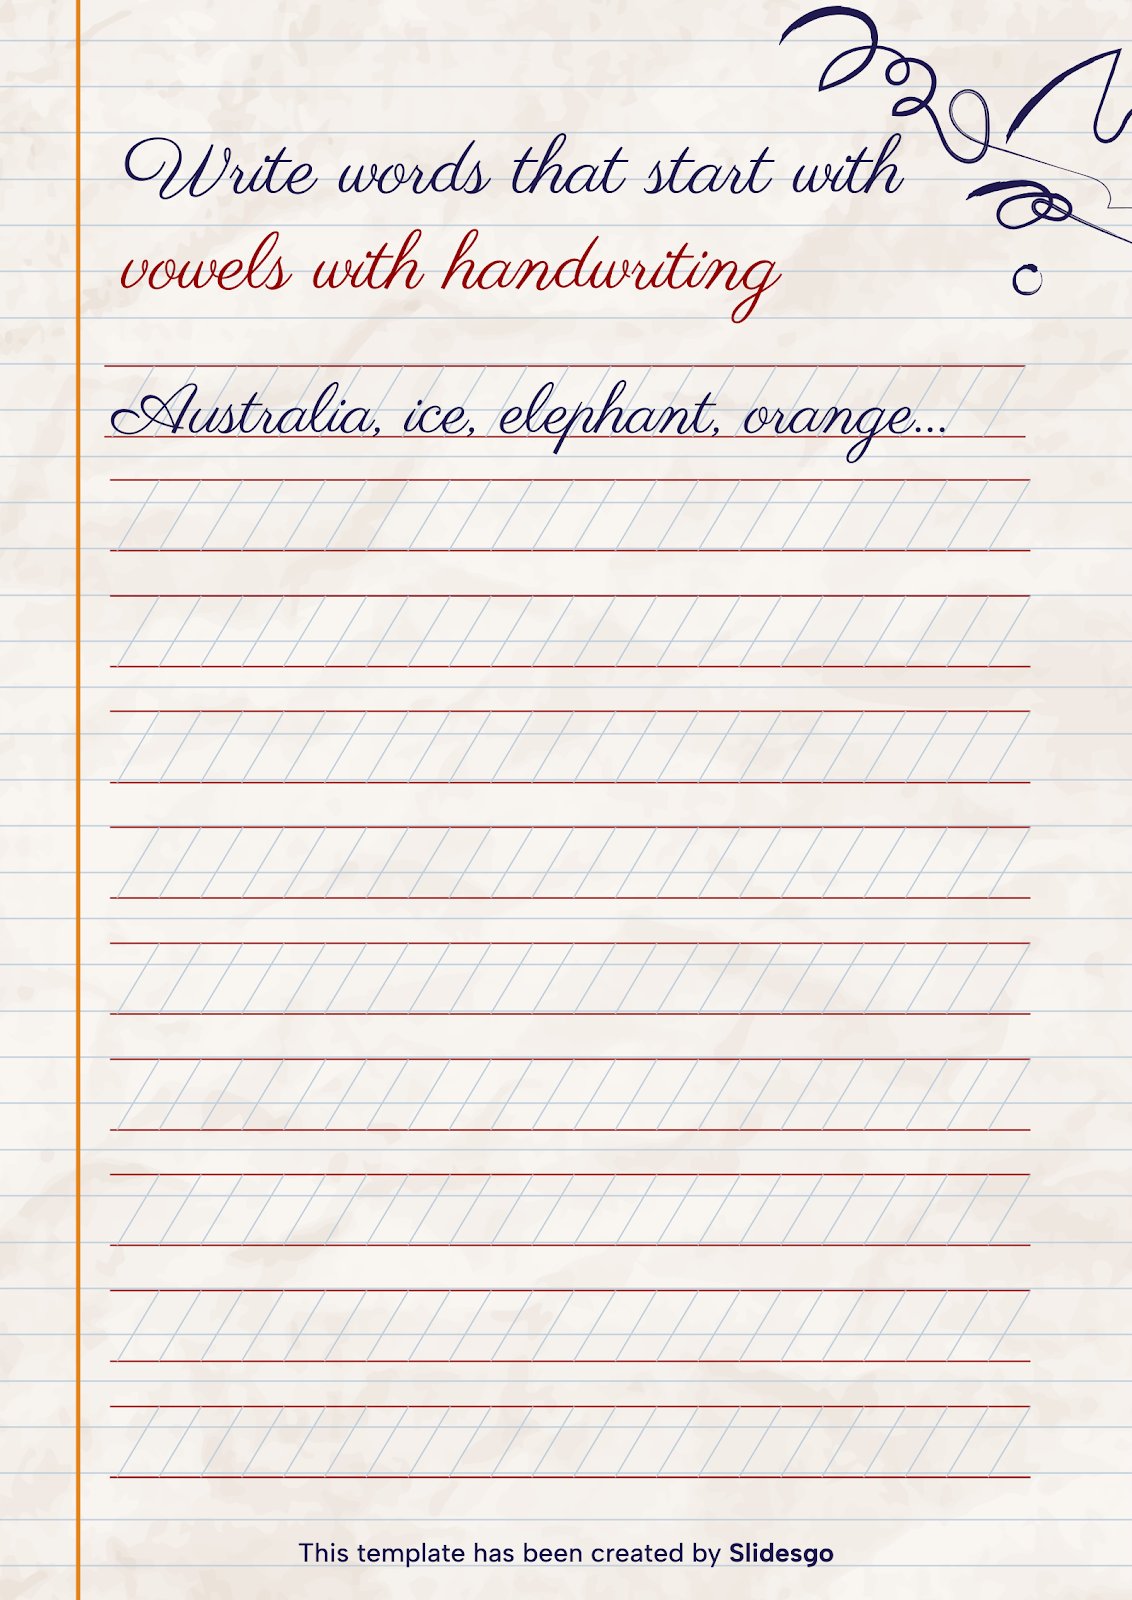 Write words that start with
vowels with handwriting
Australia, ice, elephant, orange...
This template has been created by Slidesgo